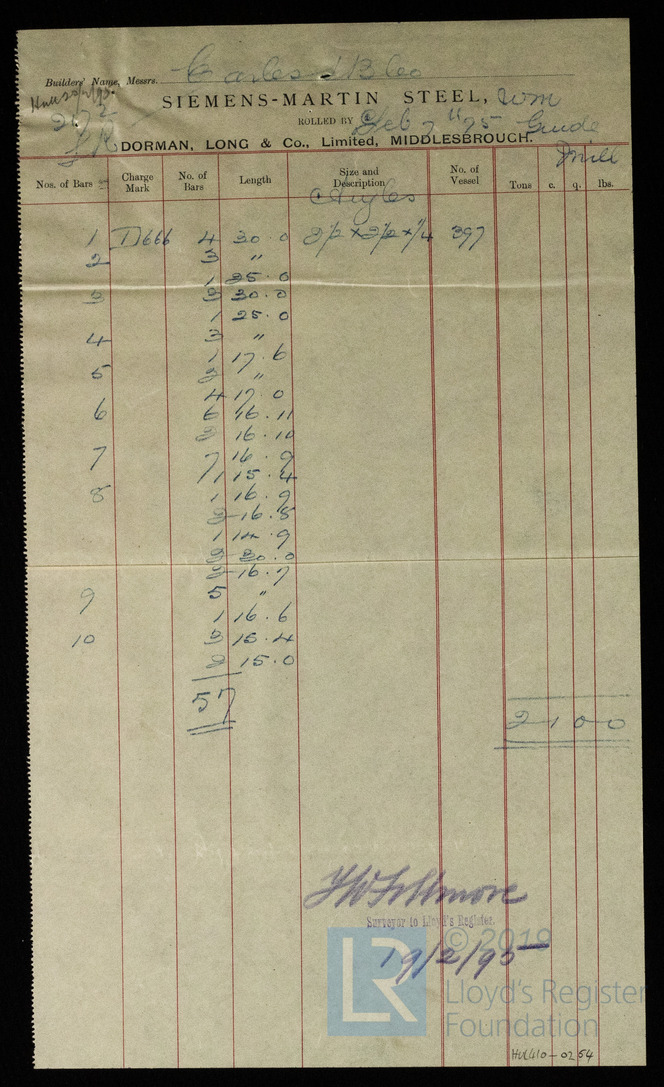 Builders' Name, Messrs. Earles S B Co
Hull 20/2/95.
SIEMENS-MARTIN STEEL,
ROLLED BY Feb 7th 95 Gude
DORMAN, LONG & Co., Limited, MIDDLESBROUGH.
Mill
Nos. of Bars Charge Mark No. of Bars Length Size and Description No. of Vessel Tons c. q. lbs.
Angles
1 D666 4 30.0 2½ × 2½ × ¼ 397
2 3 "
1 25.0
3 3 30.0
1 25.0
4 3 "
1 17.6
5 2 "
4 17.0
6 6 16.11
2 16.10
7 7 16.9
1 15.4
8 1 16.9
2 16.8
1 14.9
2 30.0
2 16.7
9 5 "
1 16.6
10 3 15.4
2 15.0
57
2 1 0 0
Surveyor to Lloyd's Register.
19/2/95
© 2019
LR
Lloyd's Register
Foundation
HUL410-0254